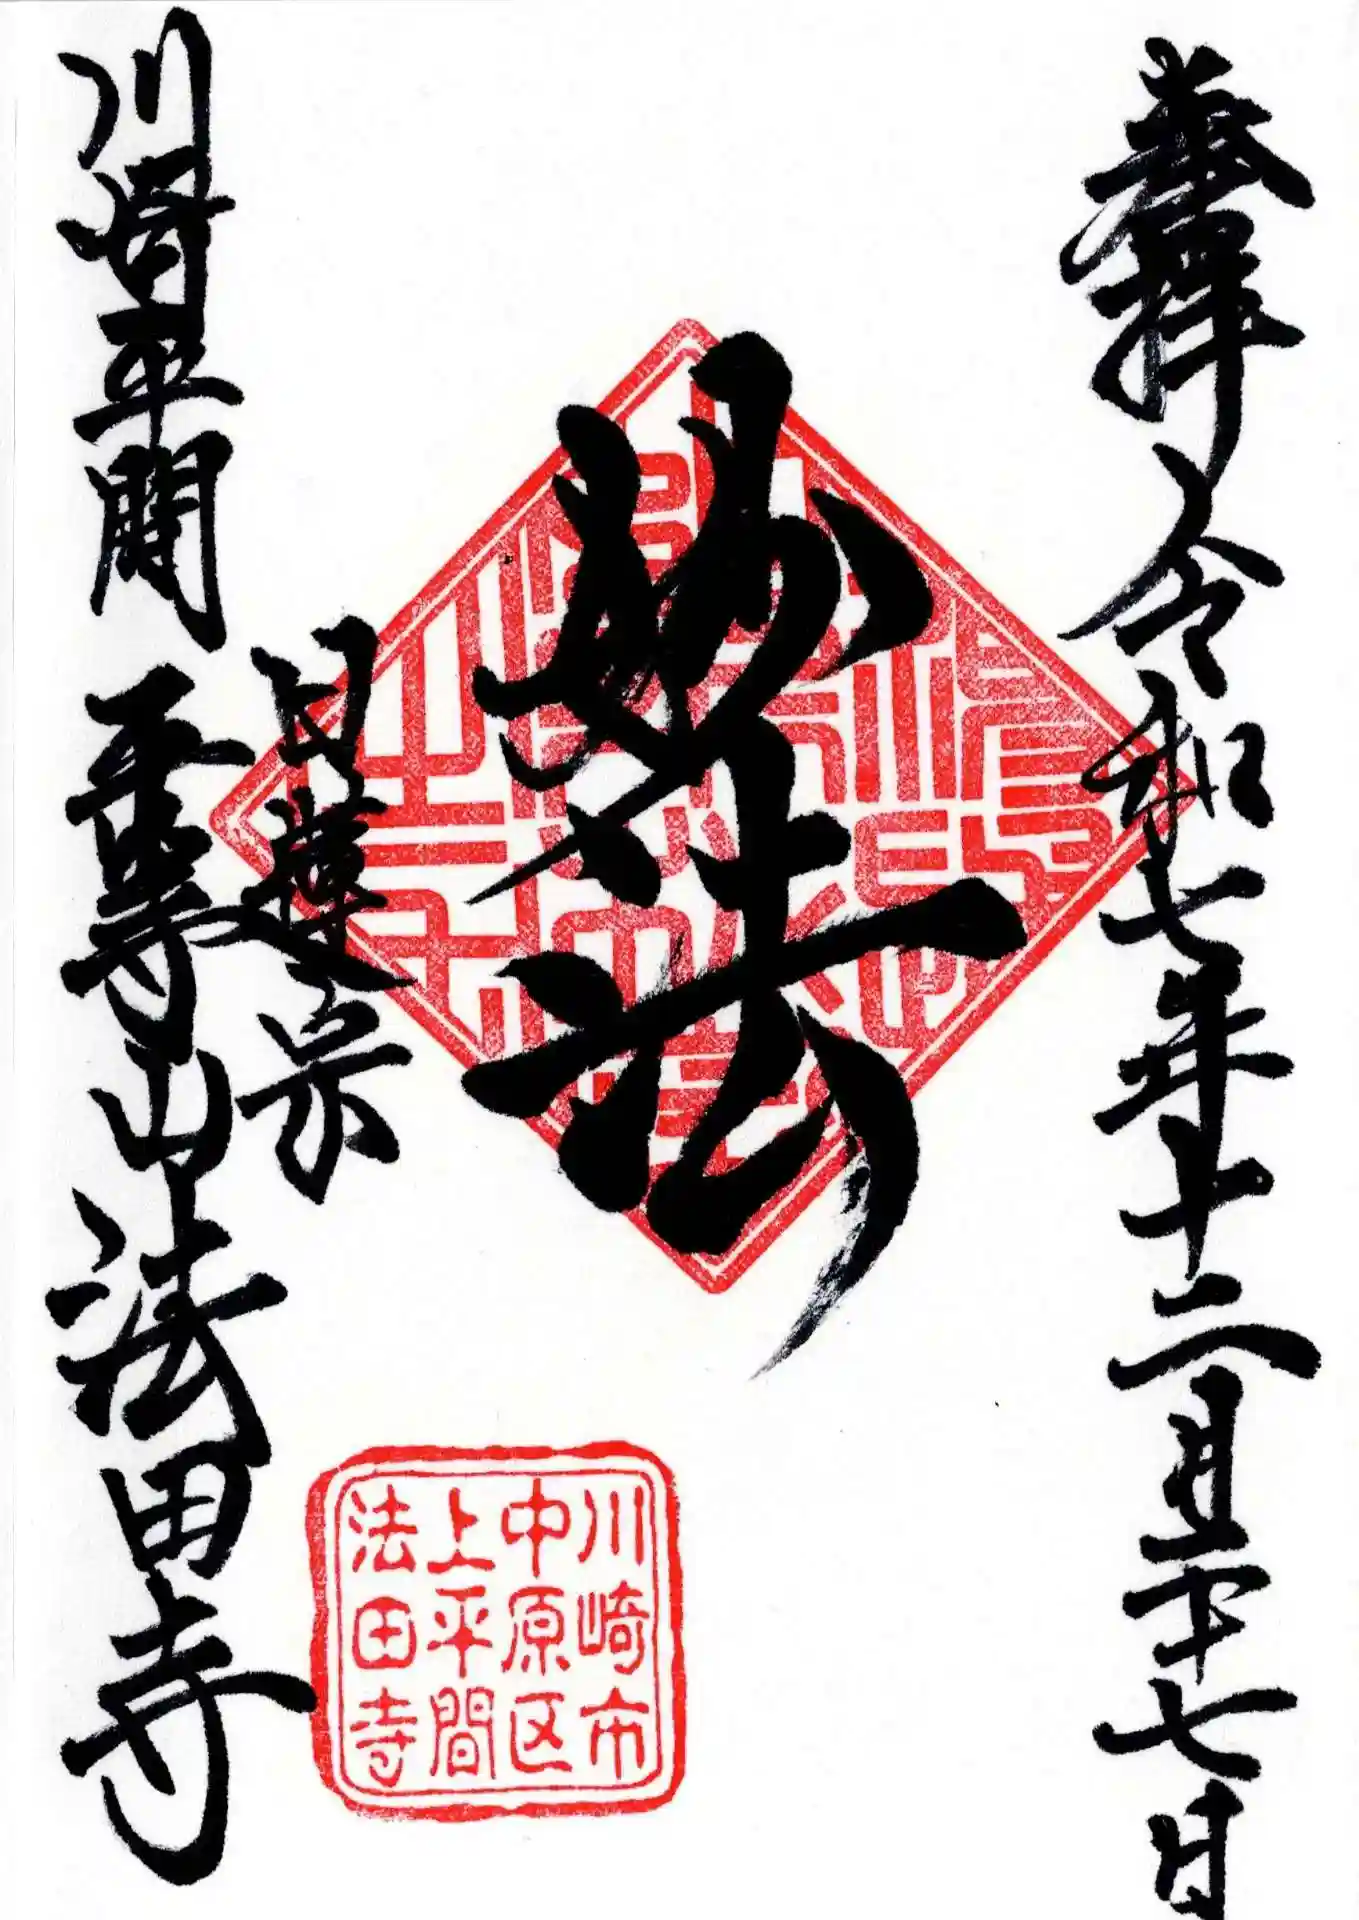 奉拝 令和七年十二月二十七日
妙法
日蓮宗
川崎平間 至尊山 法田寺
川崎市
中原区
上平間
法田寺